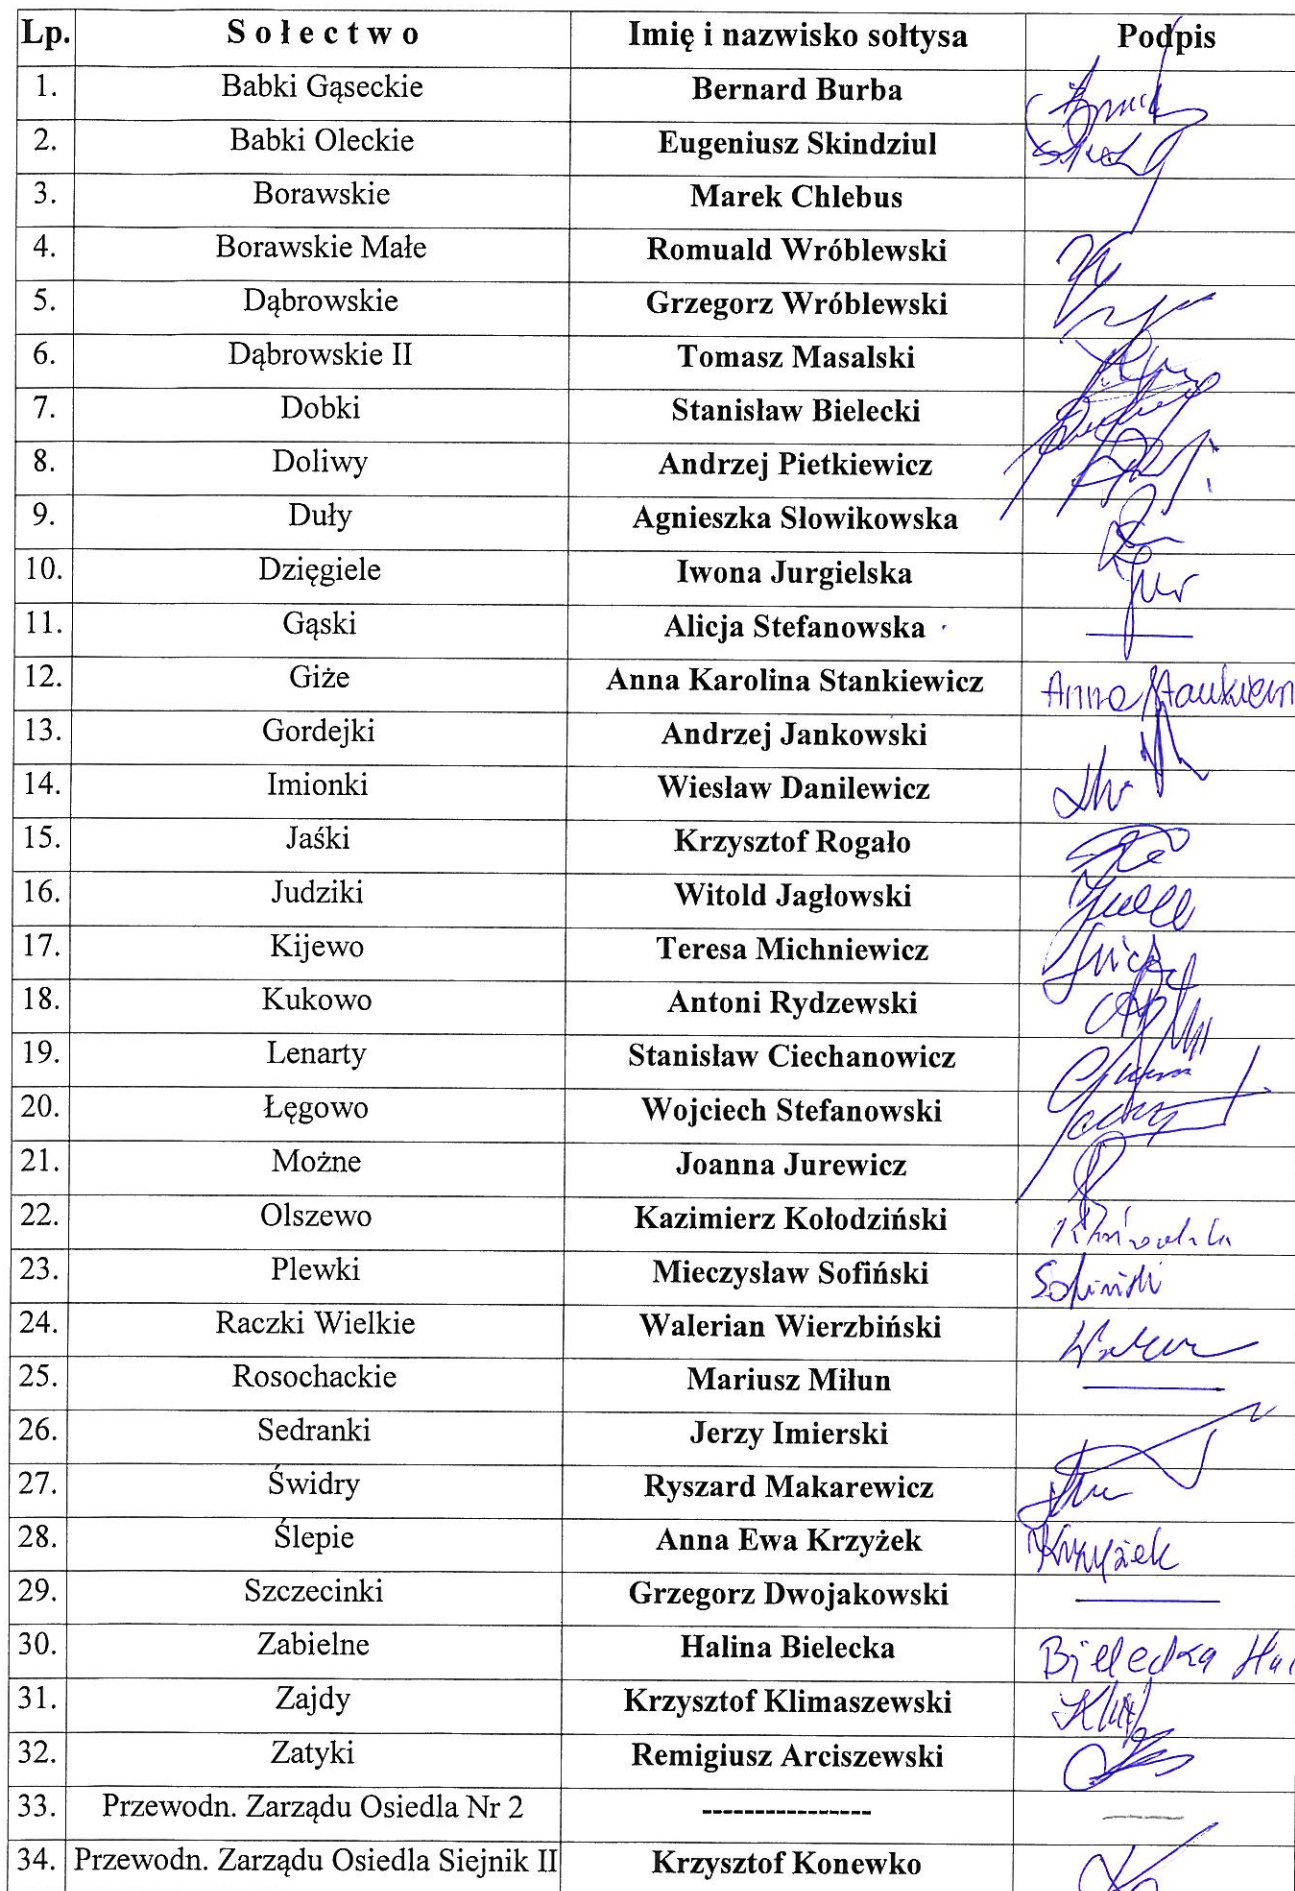 Lp. Sołectwo Imię i nazwisko sołtysa Podpis
1. Babki Gąseckie Bernard Burba
2. Babki Oleckie Eugeniusz Skindziul
3. Borawskie Marek Chlebus
4. Borawskie Małe Romuald Wróblewski
5. Dąbrowskie Grzegorz Wróblewski
6. Dąbrowskie II Tomasz Masalski
7. Dobki Stanisław Bielecki
8. Doliwy Andrzej Pietkiewicz
9. Duły Agnieszka Słowikowska
10. Dzięgiele Iwona Jurgielska
11. Gąski Alicja Stefanowska
12. Giże Anna Karolina Stankiewicz Anna
13. Gordejki Andrzej Jankowski
14. Imionki Wiesław Danilewicz
15. Jaśki Krzysztof Rogało
16. Judziki Witold Jagłowski
17. Kijewo Teresa Michniewicz
18. Kukowo Antoni Rydzewski
19. Lenarty Stanisław Ciechanowicz
20. Łęgowo Wojciech Stefanowski
21. Możne Joanna Jurewicz
22. Olszewo Kazimierz Kołodziński
23. Plewki Mieczysław Sofiński Sofiński
24. Raczki Wielkie Walerian Wierzbiński
25. Rosochackie Mariusz Miłun
26. Sedranki Jerzy Imierski
27. Świdry Ryszard Makarewicz
28. Ślepie Anna Ewa Krzyżek Krzyżek
29. Szczecinki Grzegorz Dwojakowski
30. Zabielne Halina Bielecka Bielecka
31. Zajdy Krzysztof Klimaszewski
32. Zatyki Remigiusz Arciszewski
33. Przewodn. Zarządu Osiedla Nr 2 ---------------
34. Przewodn. Zarządu Osiedla Siejnik II Krzysztof Konewko